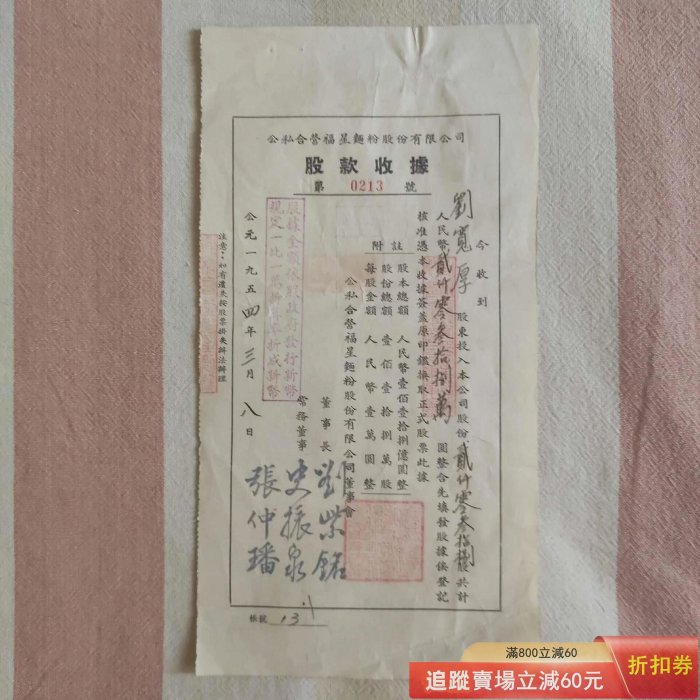 公私合營福星麵粉股份有限公司
股款收據
第 0213 號
今收到
劉寬厚 股東投入本公司股份貳仟零叁拾捌股共計
人民幣貳仟零叁拾捌萬 圓整合先填發股據俟登記
核准憑本收據簽蓋原印鑑換取正式股票此據
附註
股本總額 人民幣壹佰壹拾捌億圓整
股份總額 壹佰壹拾捌萬股
每股金額 人民幣壹萬圓整
公私合營福星麵粉股份有限公司董事會
董事長 劉紫銘
常務董事 史振泉
張仲璠
股據金額依照政府發行新幣
規定一比一萬折成新幣
公元一九五四年三月八日
注意：如有遺失按股票掛失辦法辦理
帳號
滿800立減60
追蹤賣場立減60元
折扣券